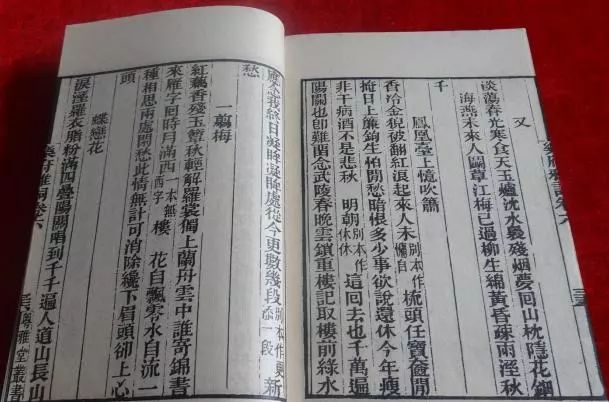 又
淡蕩春光寒食天玉爐沈水裊殘烟夢回山枕隱花鈿
海燕未來人鬭草江梅已過柳生綿黃昏疎雨溼秋
千
鳳凰臺上憶吹簫
香冷金猊被翻紅浪起來人未別本作慵自梳頭任寶奩開
掩日上簾鉤生怕閒愁暗恨多少事欲說還休今年瘦
非干病酒不是悲秋 明朝別本作休休這回去也千萬遍
陽關也卽難留念武陵春晚雲鎖重樓記取樓前綠水
應念我終日凝眸凝眸處從今更數幾段別本作更添一段新
愁
一翦梅
紅藕香殘玉簟秋輕解羅裳獨上蘭舟雲中誰寄錦書
來雁字回時月滿西一本無西字樓 花自飄零水自流一
種相思兩處閒愁此情無計可消除纔下眉頭卻上心
頭
蝶戀花
淚溼羅衣脂粉滿四疊陽關唱到千千遍人道山長山
樂府雅詞卷六
粵雅堂叢書